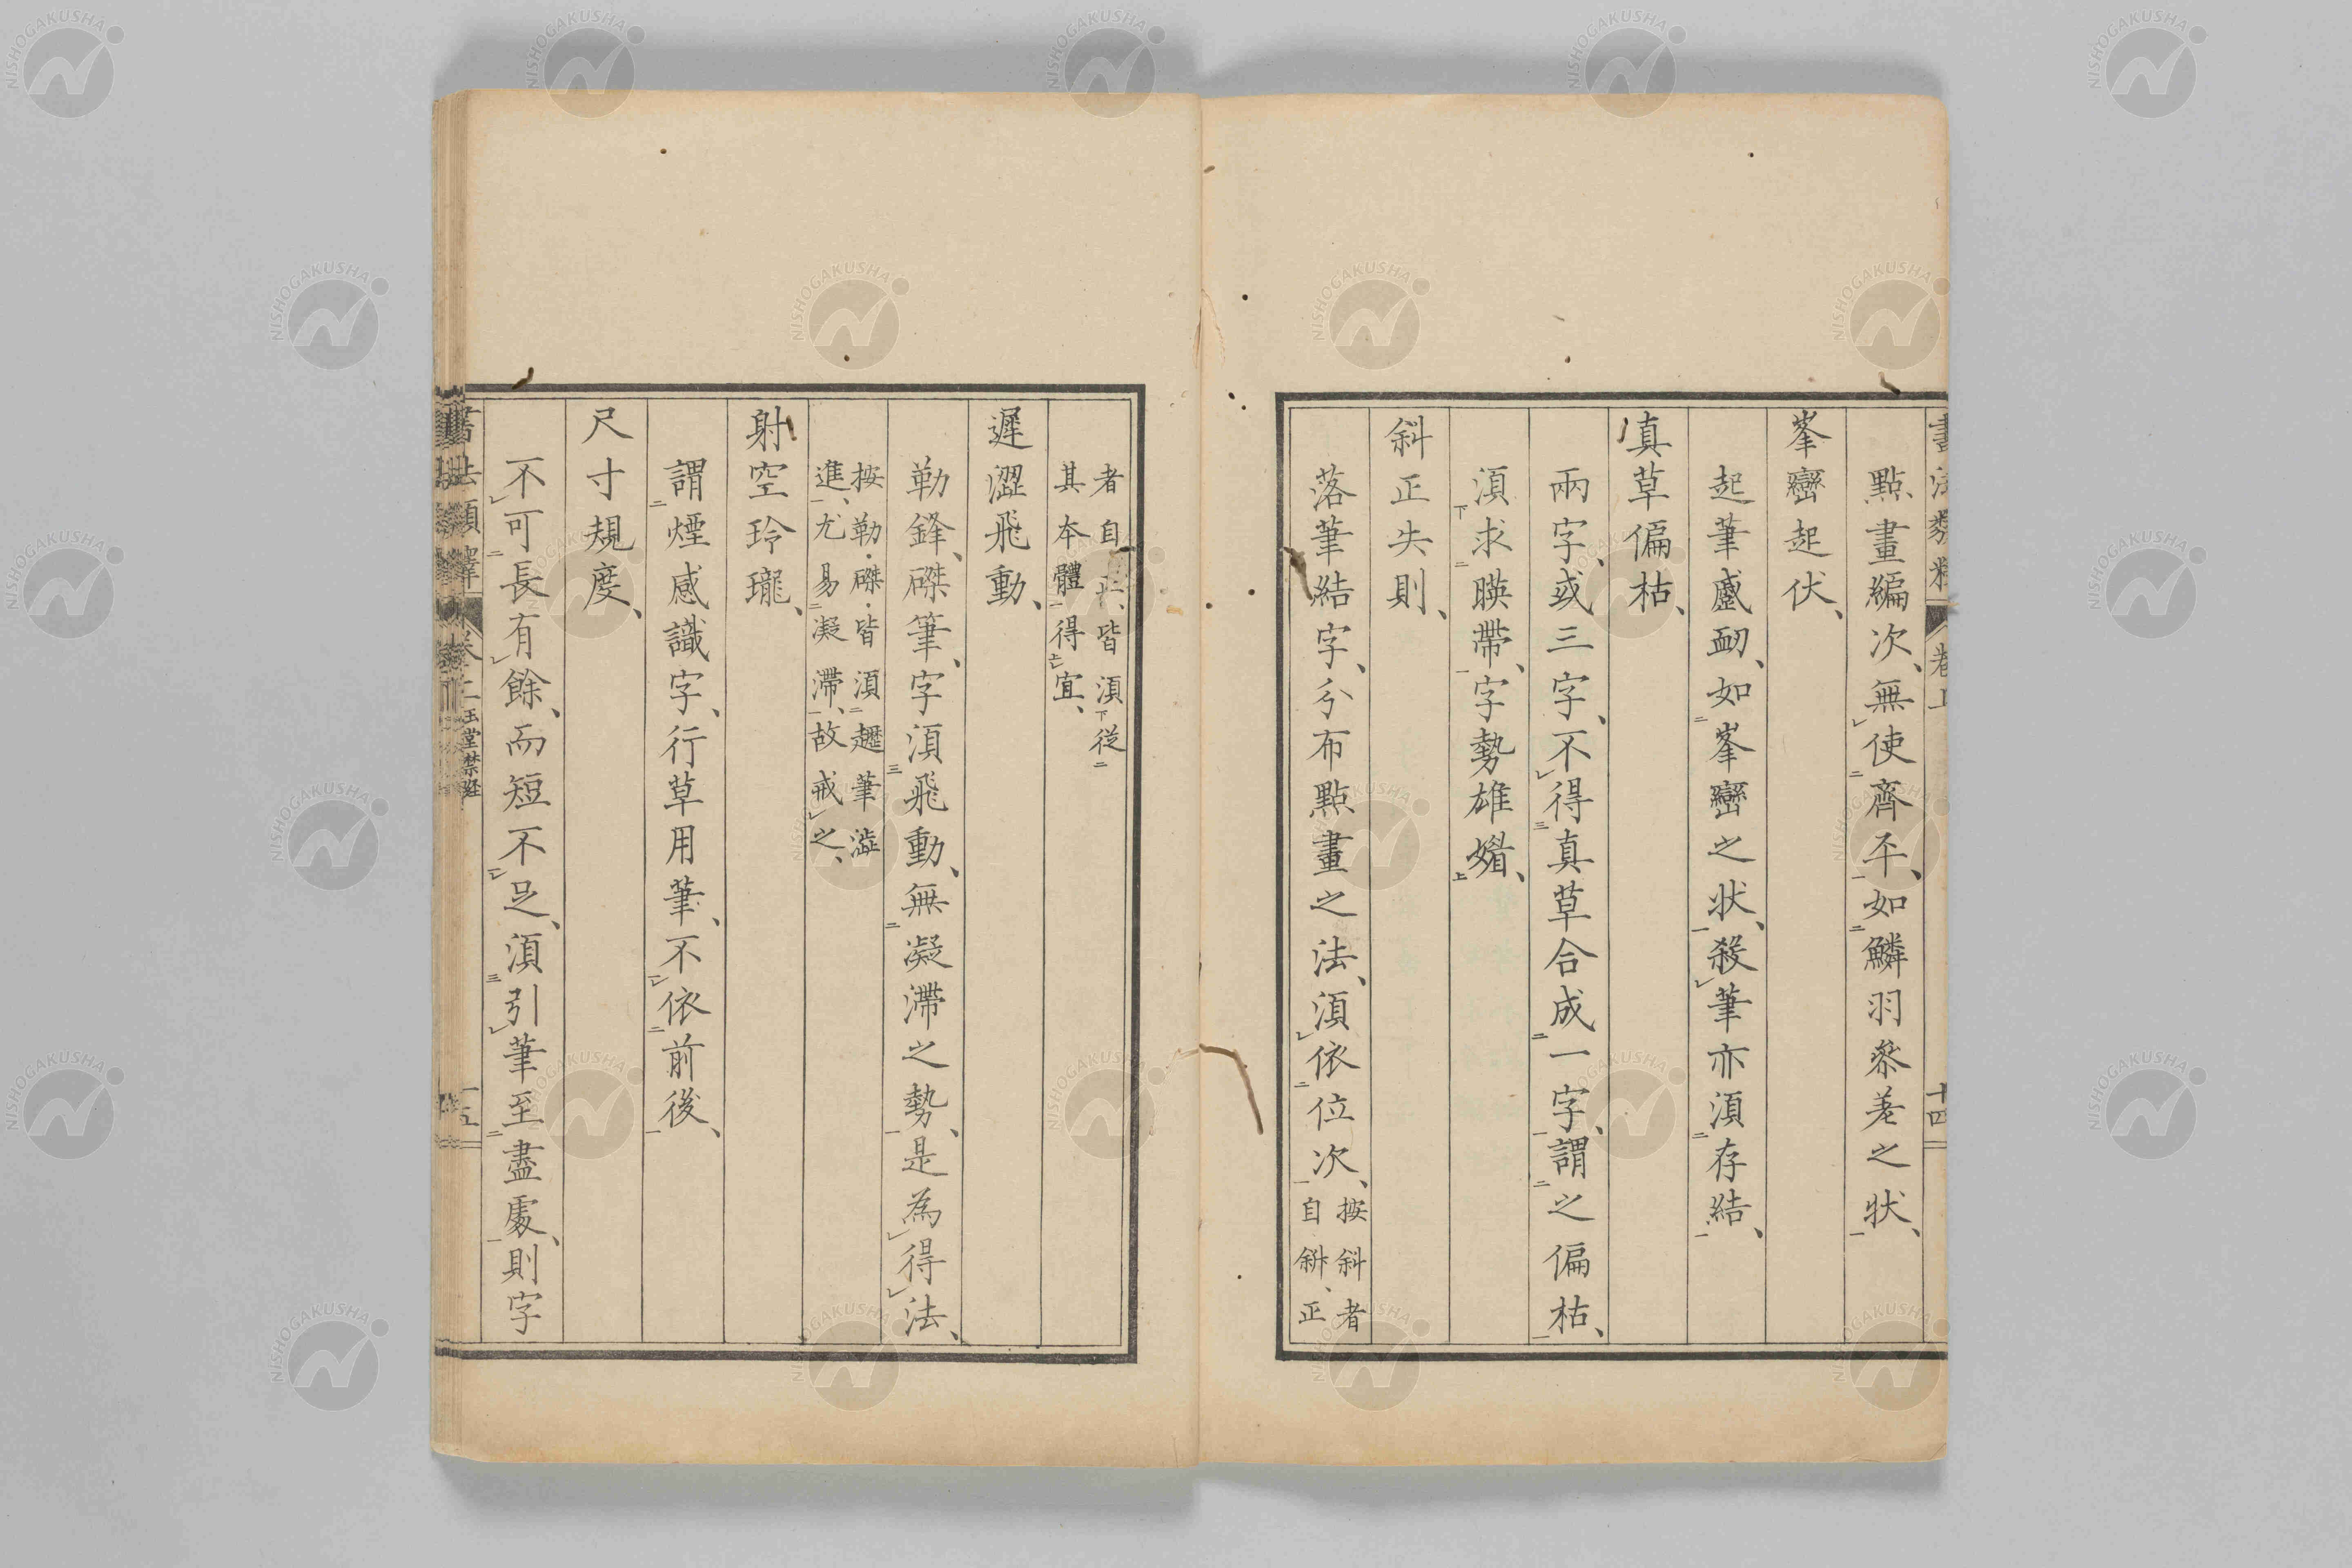 點畫編次、無使齊平、如鱗羽參差之狀、
峯巒起伏、
起筆蹙衂、如峯巒之狀、殺筆亦須存結、
真草偏枯、
兩字、或三字、不得真草合成一字、謂之偏枯、
須求暎帶、字勢雄媚、
斜正失則、
落筆結字、分布點畫之法、須依位次、
按斜者
自斜、正
者自正、皆須從
其本體得宜、
遲澀飛動、
勒鋒、磔筆、字須飛動、無凝滯之勢、是為得法、
按勒・磔・皆須趯筆澁
進、尤易凝滯、故戒之、
射空玲瓏、
謂煙感識字、行草用筆、不依前後、
尺寸規度、
不可長有餘、而短不足、須引筆至盡處、則字
玉堂禁經
卷上
十四
NISHOGAKUSHA